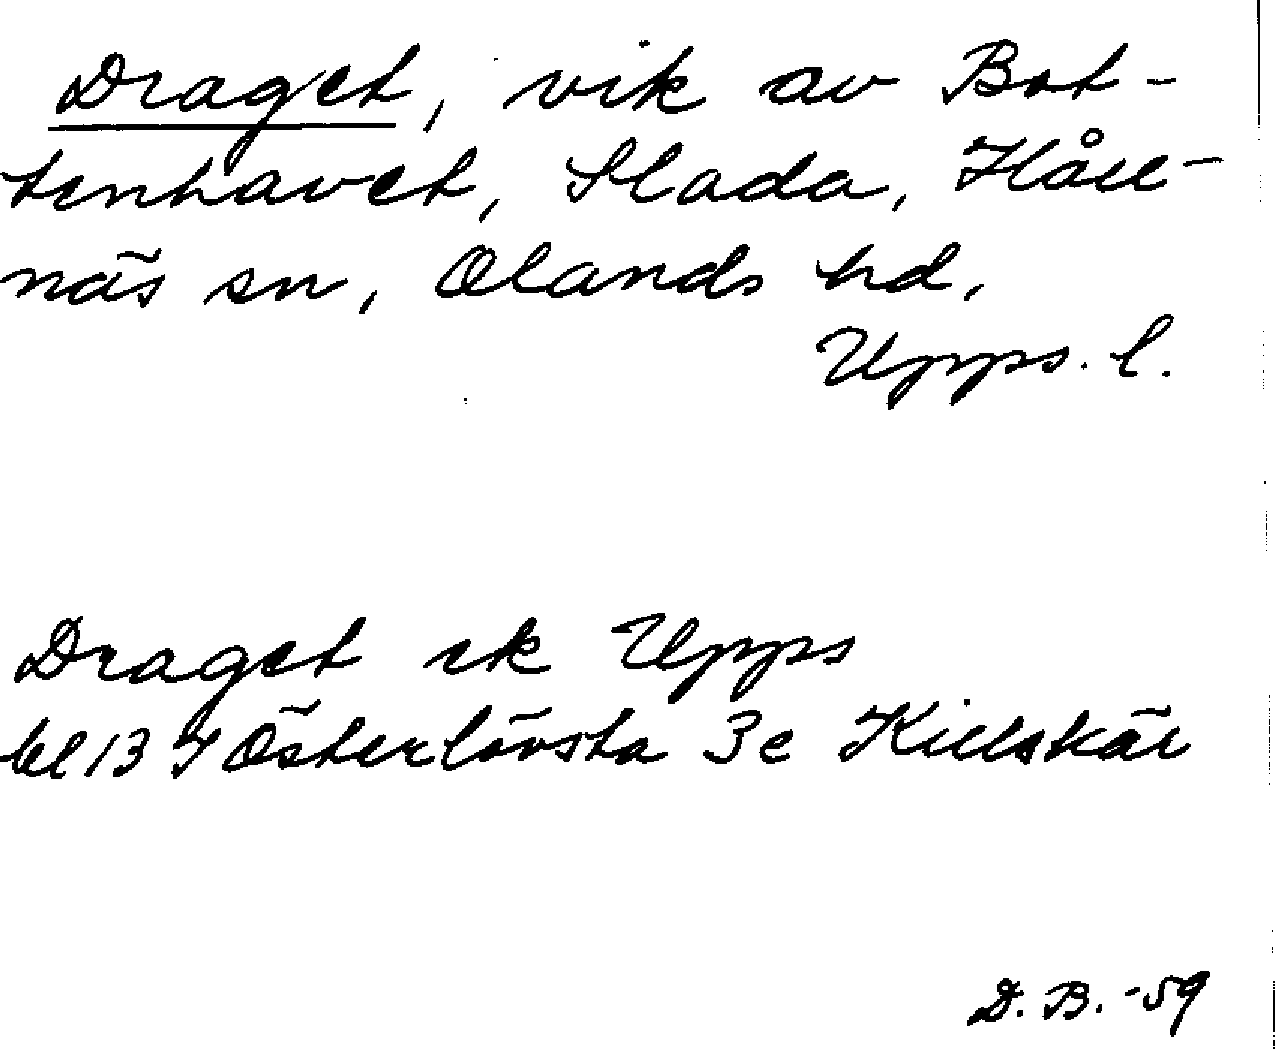 Draget, vik av Bot-
tenhavet, Slada, Håll-
näs sn, Olands hd,
Upps. l.
Draget ek Upps
bl 13 Österlövsta 3e Killskär
D. B. -59